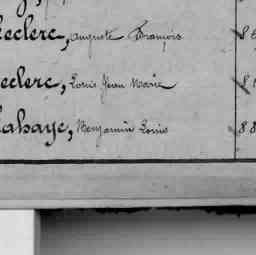 Leclerc, Auguste François
Leclerc, Louis Jean Marie
Lahaye, Benjamin Louis